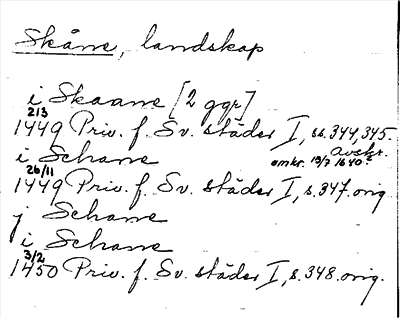 Skåne, landskap
i Skaane [2 ggr]
1449 21/3 Priv. f. Sv. städer I, ss. 344, 345.
avskr.
omkr. 13/7 1640.
i Schane
1449 26/11 Priv. f. Sv. städer I, s. 347. orig
j Schane
i Schane
1450 3/2 Priv. f. Sv. städer I, s. 348. orig.